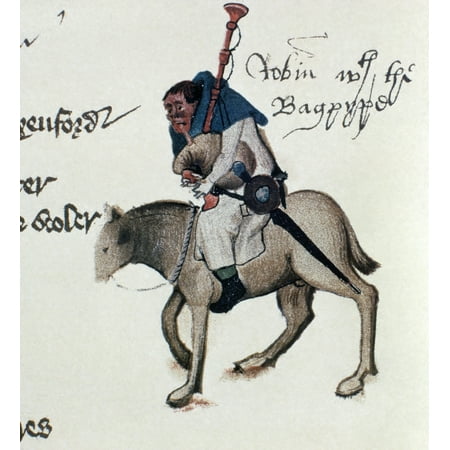 Robin wth the
Bagpype
enford
er
Scoler
es